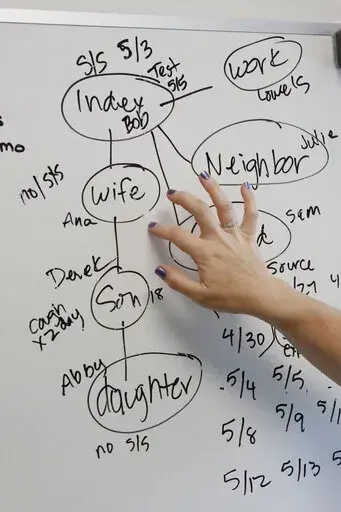 S/S 5/3
Test
5/5
Index
Bob
Work
Lowe's
Julie
Neighbor
mo
no S/S
Wife
Ana
Sam
d
Source
Derek
Son
18
cough
x2 day
4/30
5/4 5/5
Abby
daughter
5/8 5/9
no S/S
5/12 5/13